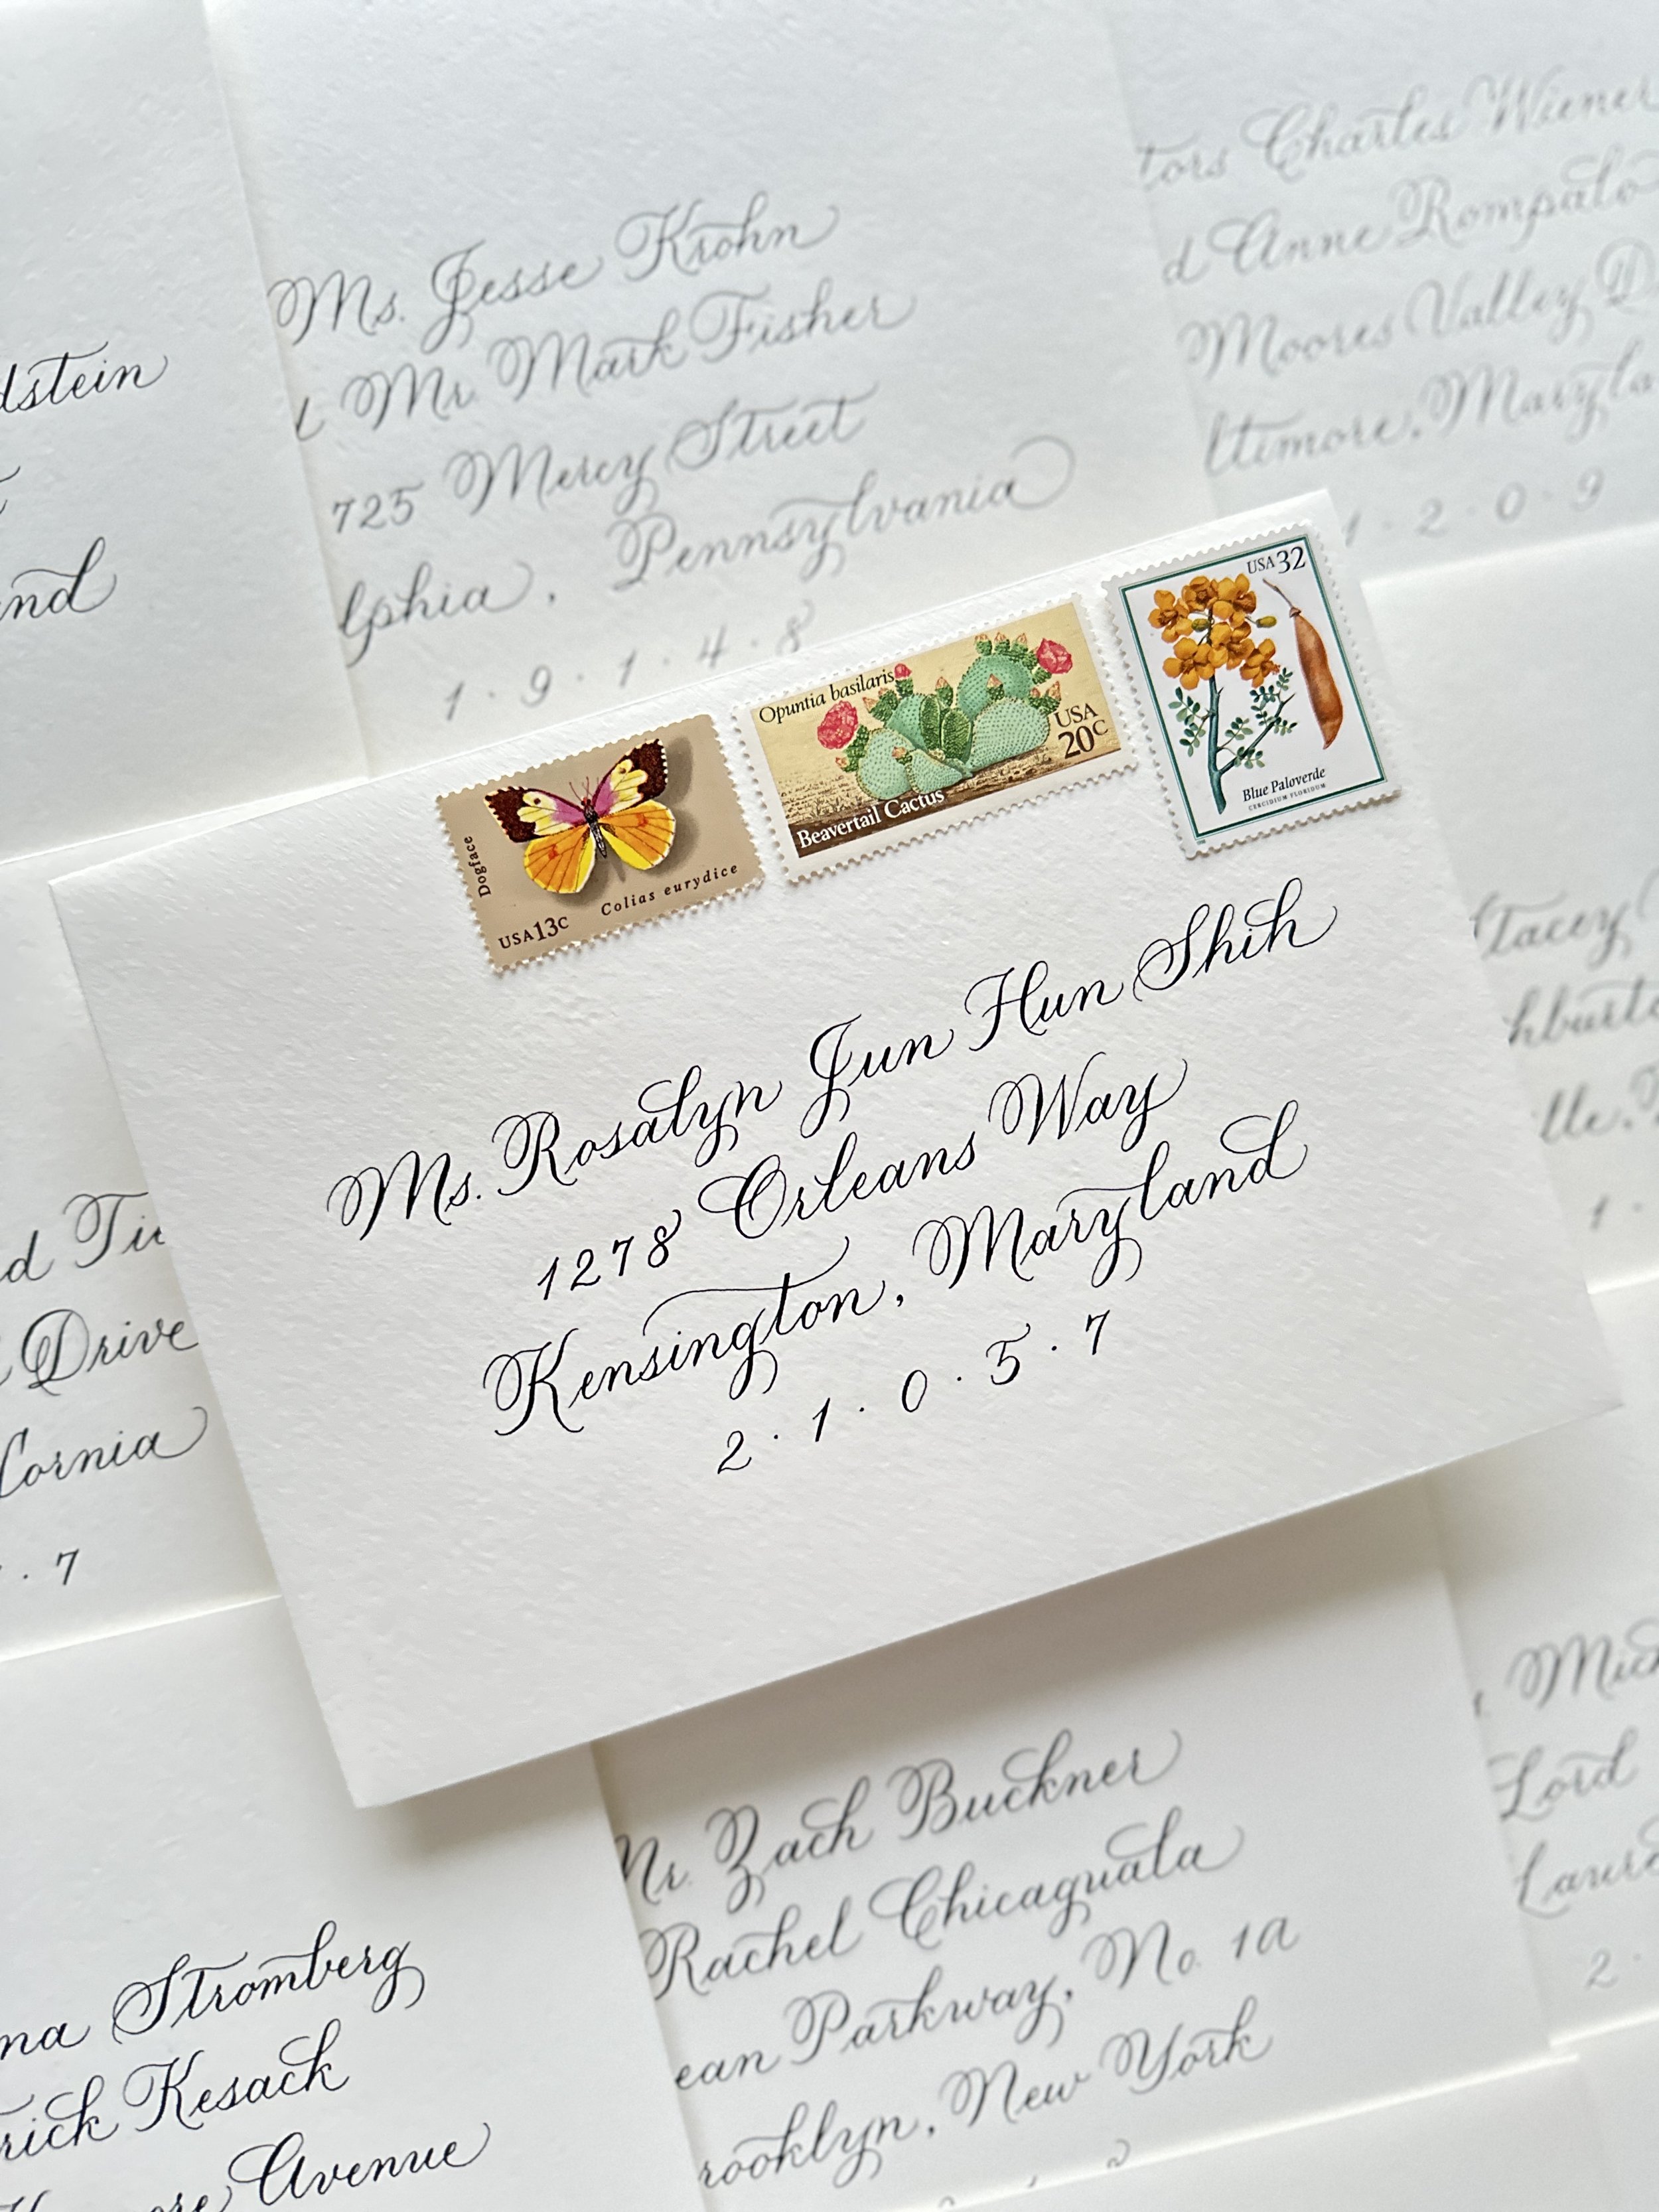 tors Charles Wiener
d Anne Rompalo
Moores Valley D
ltimore, Maryla
1 · 2 · 0 · 9
Ms. Jesse Krohn
Mr. Mark Fisher
725 Mercy Street
lphia, Pennsylvania
1 · 9 · 1 · 4 · 8
dstein
nd
Dogface
USA 13c
Colias eurydice
Opuntia basilaris
USA
20c
Beavertail Cactus
USA 32
Blue Paloverde
CERCIDIUM FLORIDUM
Ms. Rosalyn Jun Hun Shih
1278 Orleans Way
Kensington, Maryland
2 · 1 · 0 · 5 · 7
tacey
hburto
lle,
1 ·
d Ti
Drive
fornia
· 7
ma Stromberg
rick Kesack
more Avenue
Mr. Zach Buckner
Rachel Chicaguala
ean Parkway, No. 1a
rooklyn, New York
Mich
Lord
Laure
2 ·